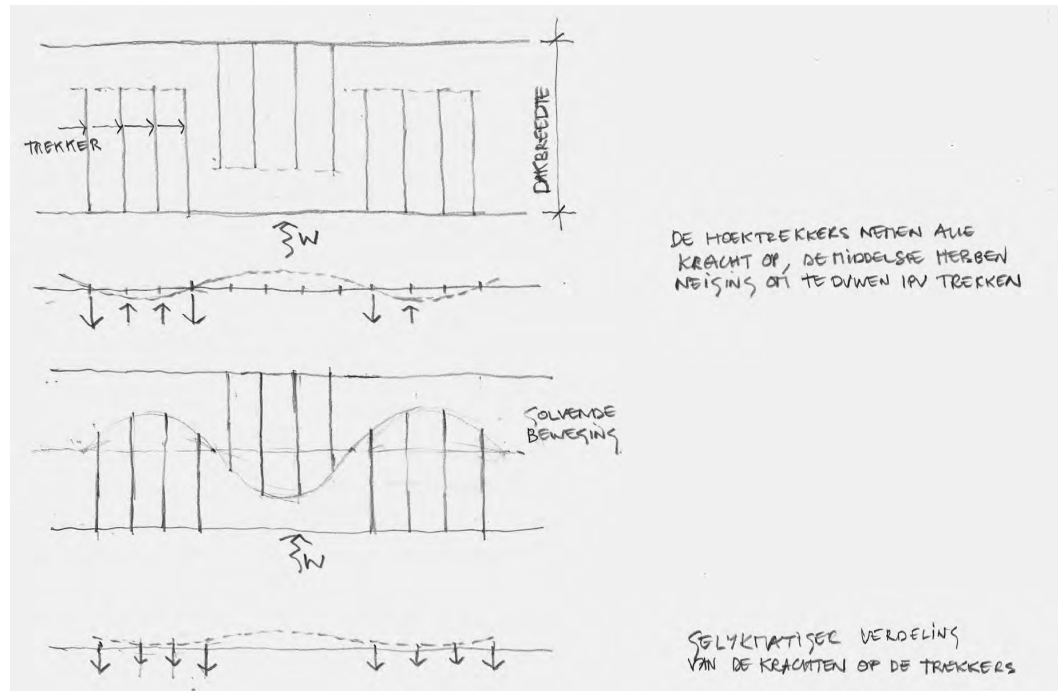 TREKKER
DAKBREEDTE
W
DE HOEKTREKKERS NEMEN ALLE
KRACHT OP, DE MIDDELSTE HEBBEN
NEIGING OM TE DUWEN IPV TREKKEN
GOLVENDE
BEWEGING
W
GELYKMATIGER VERDELING
VAN DE KRACHTEN OP DE TREKKERS